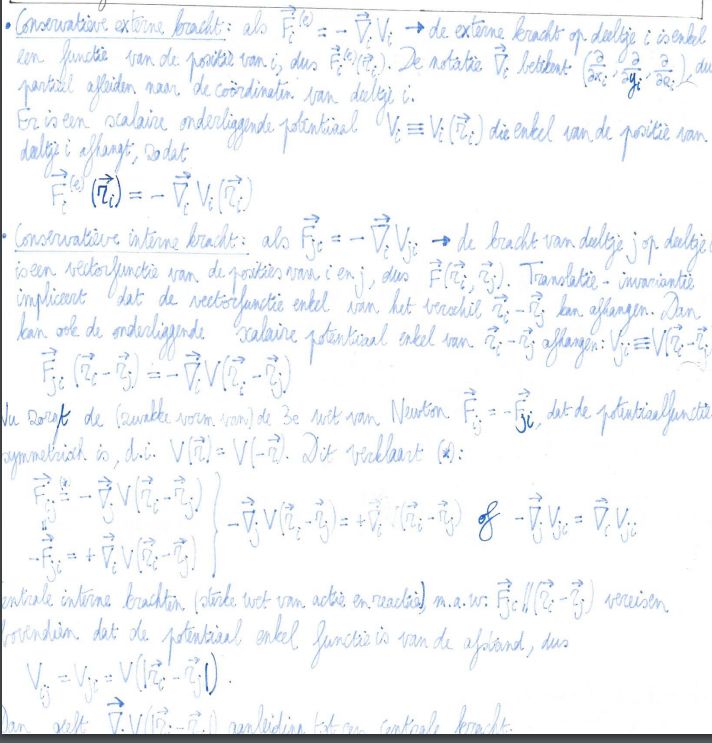 • Conservatieve externe kracht: als F⃗ᵢ⁽ᵉ⁾ = - ∇⃗ᵢ Vᵢ → de externe kracht op deeltje i is enkel
een functie van de positie van i, dus F⃗ᵢ⁽ᵉ⁾(r⃗ᵢ). De notatie ∇⃗ᵢ betekent (∂/∂xᵢ, ∂/∂yᵢ, ∂/∂zᵢ), dus
partieel afleiden naar de coördinaten van deeltje i.
Er is een scalaire onderliggende potentiaal Vᵢ ≡ Vᵢ(r⃗ᵢ) die enkel van de positie van
deeltje i afhangt, zodat
F⃗ᵢ⁽ᵉ⁾(r⃗ᵢ) = - ∇⃗ᵢ Vᵢ(r⃗ᵢ)
• Conservatieve interne kracht: als F⃗ⱼᵢ = - ∇⃗ᵢ Vⱼᵢ → de kracht van deeltje j op deeltje i
is een vectorfunctie van de posities van i en j, dus F⃗(r⃗ᵢ, r⃗ⱼ). Translatie-invariantie
impliceert dat de vectorfunctie enkel van het verschil r⃗ᵢ - r⃗ⱼ kan afhangen. Dan
kan ook de onderliggende scalaire potentiaal enkel van r⃗ᵢ - r⃗ⱼ afhangen: Vⱼᵢ ≡ V(r⃗ᵢ - r⃗ⱼ
F⃗ⱼᵢ (r⃗ᵢ - r⃗ⱼ) = - ∇⃗ᵢ V(r⃗ᵢ - r⃗ⱼ)
Nu zorgt de (zwakke vorm van) de 3e wet van Newton F⃗ᵢⱼ = -F⃗ⱼᵢ, dat de potentiaalfunctie
symmetrisch is, d.i. V(r⃗) = V(-r⃗). Dit verklaart (*):
F⃗ᵢⱼ (*)= - ∇⃗ⱼ V(r⃗ᵢ - r⃗ⱼ)
= } -∇⃗ⱼ V(r⃗ᵢ - r⃗ⱼ) = +∇⃗ᵢ V(r⃗ᵢ - r⃗ⱼ) of -∇⃗ⱼ Vⱼᵢ = ∇⃗ᵢ Vⱼᵢ
-F⃗ⱼᵢ = + ∇⃗ᵢ V(r⃗ᵢ - r⃗ⱼ)
entrale interne krachten (sterke wet van actie en reactie) m.a.w. F⃗ⱼᵢ // (r⃗ᵢ - r⃗ⱼ) vereisen
bovendien dat de potentiaal enkel functie is van de afstand, dus
Vᵢⱼ = Vⱼᵢ = V(|r⃗ᵢ - r⃗ⱼ|).
Dan geeft ∇⃗ᵢ V(|r⃗ᵢ - r⃗ⱼ|) aanleiding tot een centrale kracht.